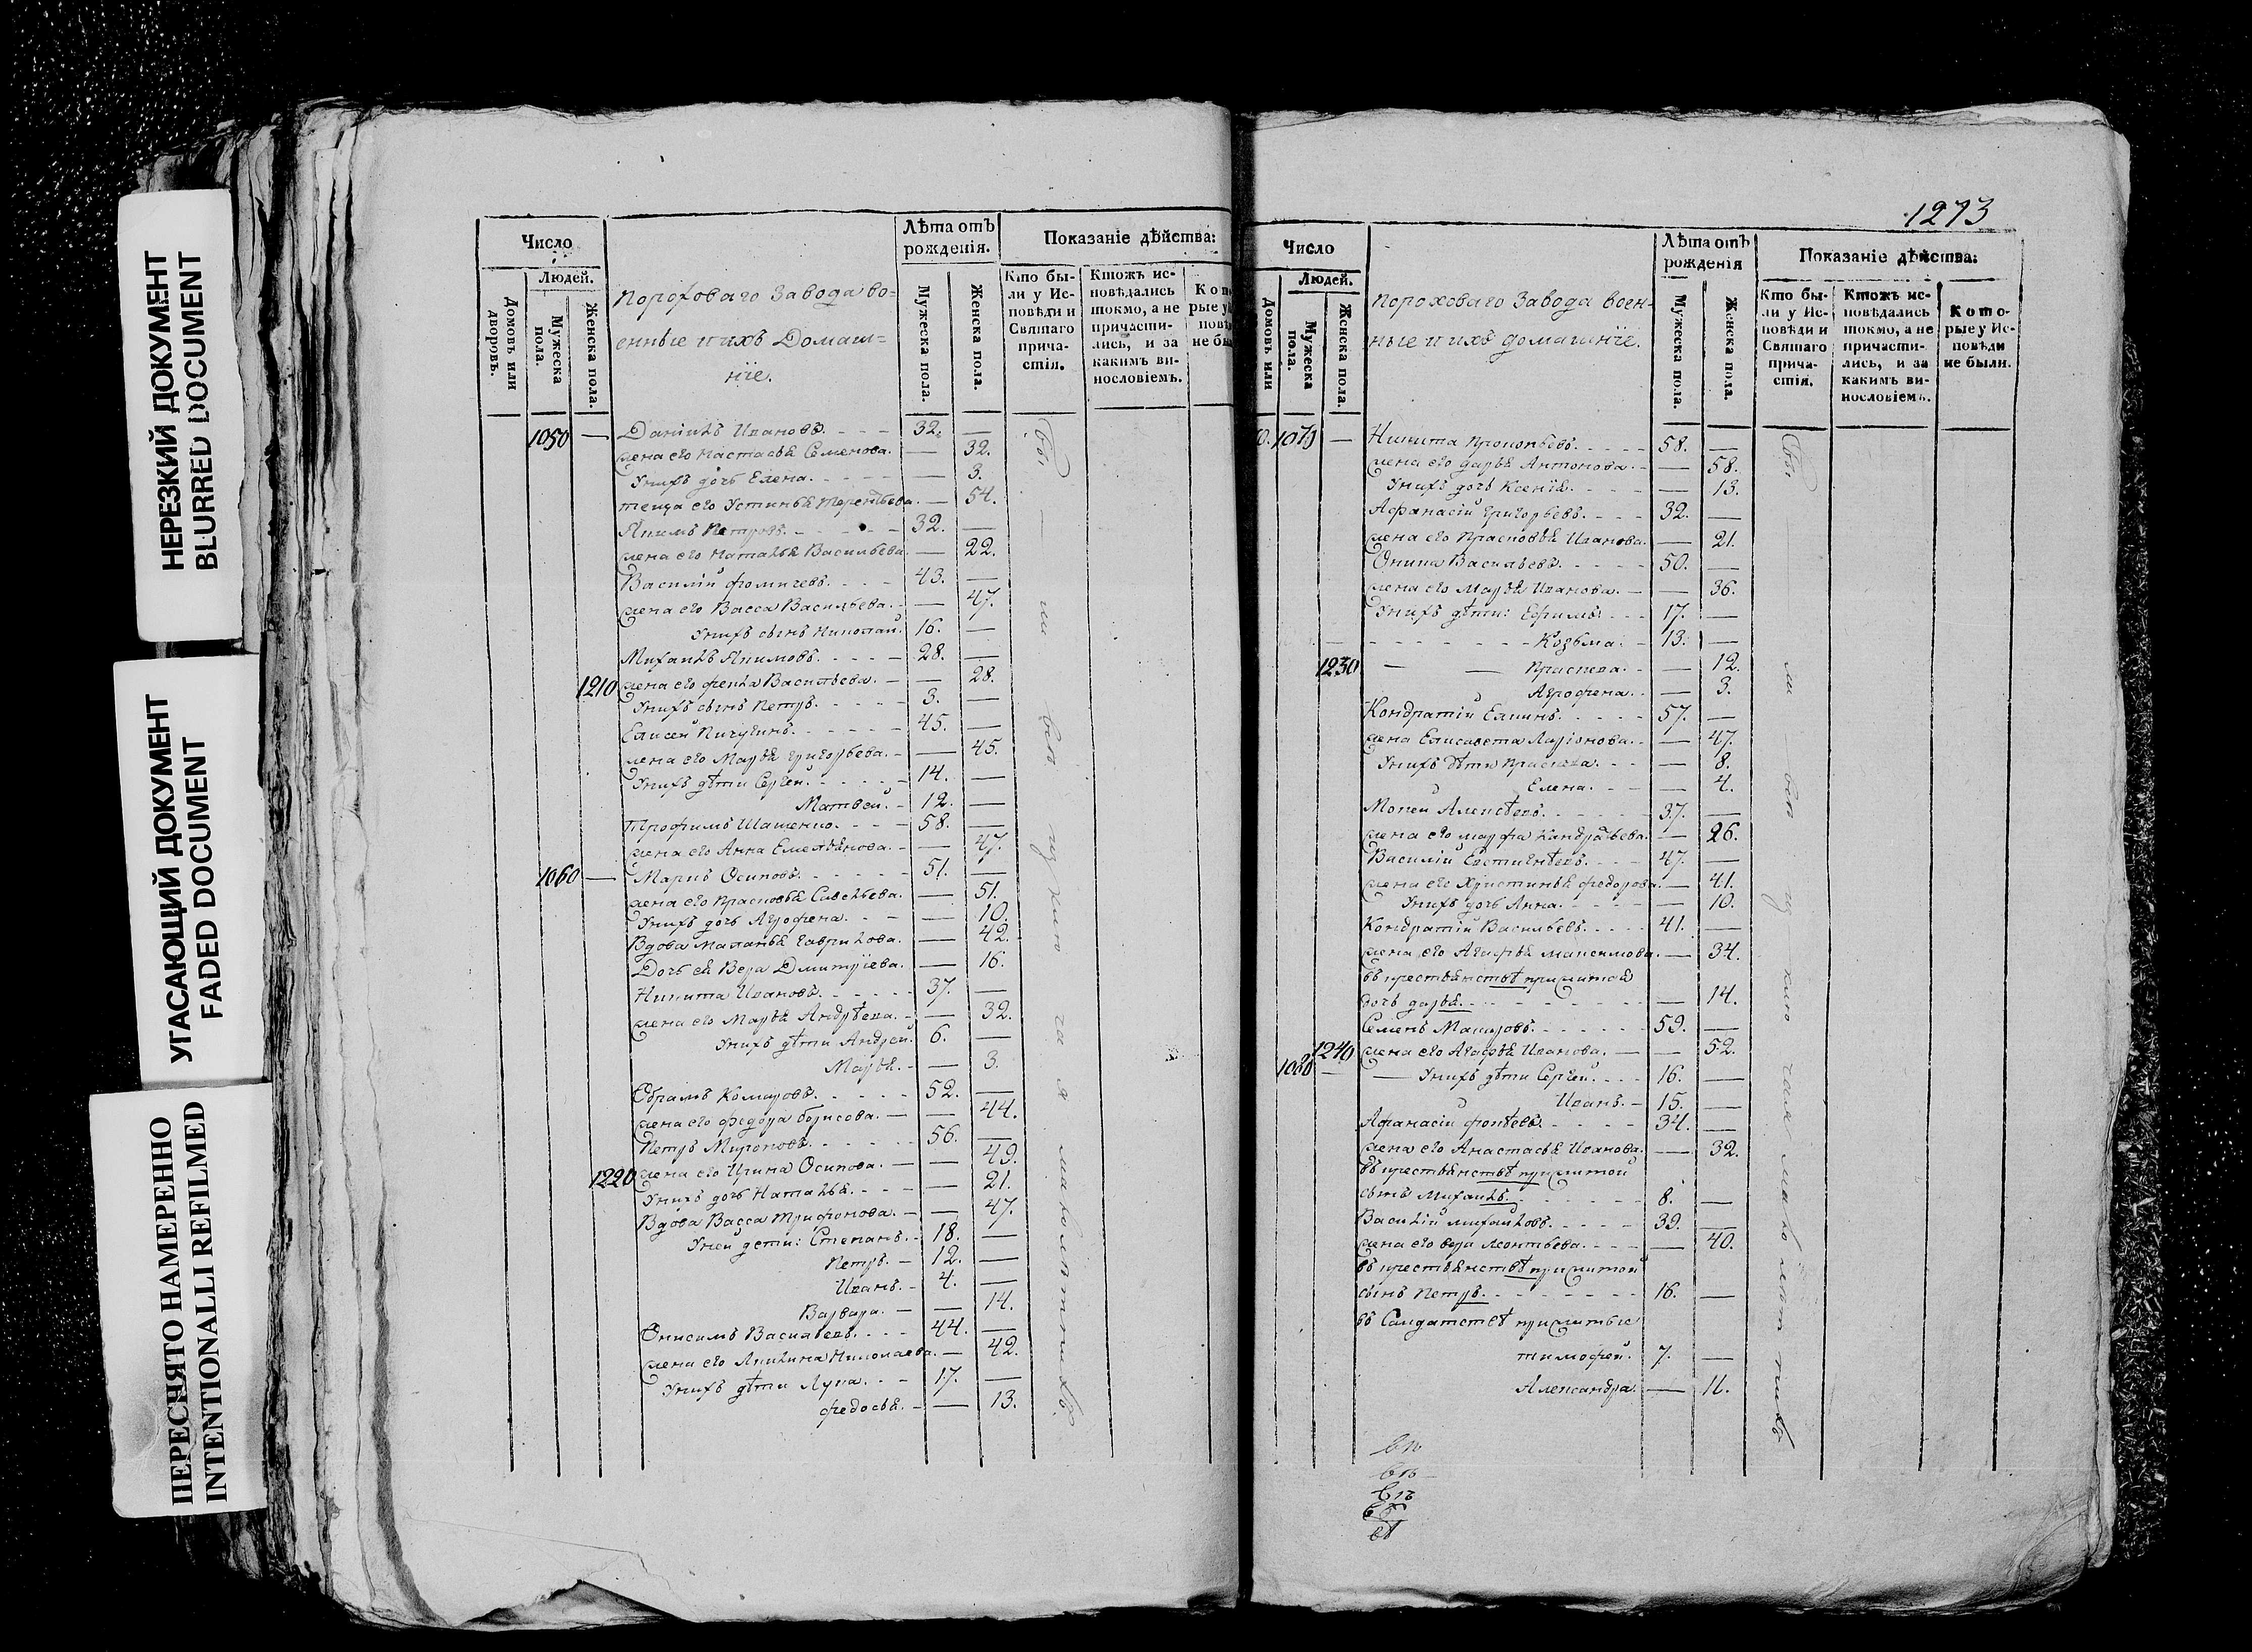 НЕРЕЗКИЙ ДОКУМЕНТ
BLURRED DOCUMENT
УГАСАЮЩИЙ ДОКУМЕНТ
FADED DOCUMENT
ПЕРЕСНЯТО НАМЕРЕННО
INTENTIONALLI REFILMED
Число
Людей.
Домовъ или дворовъ.
Мужеска пола.
Женска пола.
Пороховаго Завода во-
енные и ихъ Домаш-
ніе.
Лѣта отъ рожденія.
Мужеска пола.
Женска пола.
Показаніе дѣйства:
Кто бы-
ли у Ис-
повѣди и
Святаго
прича-
стія.
Ктожъ ис-
повѣдались
токмо, а не
причасти-
лись, и за
какимъ ви-
нословіемъ.
1050 — Данилъ Ивановъ. 32. —
жена его Настасья Семенова. — 32.
У нихъ дочь Елена. — 3.
теща его Устинья Терентьева. — 54.
Якимъ Петровъ. 32. —
жена его Наталья Васильева. — 22.
Василій Фомичевъ. 43. —
жена его Васса Васильева. — 47.
У нихъ сынъ Николай. 16. —
Михаилъ Якимовъ. 28. —
1210 жена его Фекла Васильева. — 28.
У нихъ сынъ Петръ. 3. —
Елисей Пичугинъ. 45. —
жена его Марья Григорьева. — 45.
У нихъ дѣти Сергей. 14. —
Матвей. 12. —
Трофимъ Шашенко. 58. —
жена его Анна Емельянова. — 47.
1060 — Марко Осиповъ. 51. —
жена его Прасковья Савельева. — 51.
У нихъ дочь Агрофена. — 10.
Вдова Маланья Гаврилова. — 42.
Дочь ея Вера Дмитріева. — 16.
Никита Ивановъ. 37. —
жена его Марья Андрѣева. — 32.
У нихъ дѣти Андрей. 6. —
Марья. — 3.
Абрамъ Комаровъ. 52. —
жена его Федора Борисова. — 44.
Петръ Мироновъ. 56. —
1220 жена его Ирина Осипова. — 49.
У нихъ дочь Наталья. — 21.
Вдова Васса Трифонова. — 47.
У ней дети: Степанъ. 18. —
Петръ. 12. —
Иванъ. 4. —
Варвара. — 14.
Онисимъ Васильевъ. 44. —
жена его Акилина Николаева. — 42.
У нихъ дѣти Лука. 17. —
Федосья. — 13.
1273
Число
Людей.
Домовъ или
Мужеска пола.
Женска пола.
Пороховаго Завода воен-
ные и ихъ домашніе.
Лѣта отъ рожденія
Мужеска пола.
Женска пола.
Показаніе дѣйства:
Кто бы-
ли у Ис-
повѣди и
Святаго
прича-
стія.
Ктожъ ис-
повѣдались
токмо, а не
причасти-
лись, и за
какимъ ви-
нословіемъ.
Кото-
рые у Ис-
повѣди
не были.
Никита Прокопьевъ. 58. —
жена его Дарья Антонова. — 58.
У нихъ дочь Ксенія. — 13.
Афанасій Григорьевъ. 32. —
жена его Прасковья Иванова. — 21.
Оника Васильевъ. 50. —
жена его Марья Иванова. — 36.
У нихъ дѣти: Ефимъ. 17. —
Козьма. 13. —
1230 Праскева. — 12.
Агрофена. — 3.
Кондратій Елкинъ. 57. —
жена Елисавета Ларіонова. — 47.
У нихъ дѣти Праскева. — 8.
Елена. — 4.
Мокей Алексѣевъ. 37. —
жена его Марфа Кандратьева. — 26.
Василій Евстигнѣевъ. 47. —
жена его Христинья Федорова. — 41.
У нихъ дочь Анна. — 10.
Кондратій Васильевъ. 41. —
жена его Агафья Максимова. — 34.
въ крестьянствѣ прижитой
дочь Дарья. — 14.
Семенъ Макаровъ. 59. —
1240 жена его Агафья Иванова. — 52.
1080 — У нихъ дѣти Сергей. 16. —
Иванъ. 15. —
Афанасій Фокѣевъ. 34. —
жена его Анастасья Иванова. — 32.
въ крестьянствѣ прижитой
сынъ Михаилъ. 8. —
Василій Михаиловъ. 39. —
жена его Вера Леонтьева. — 40.
въ крестьянствѣ прижитой
сынъ Петръ. 16. —
въ Салдатстѣ прижитые
Тимофей. 7. —
Александра. — 11.